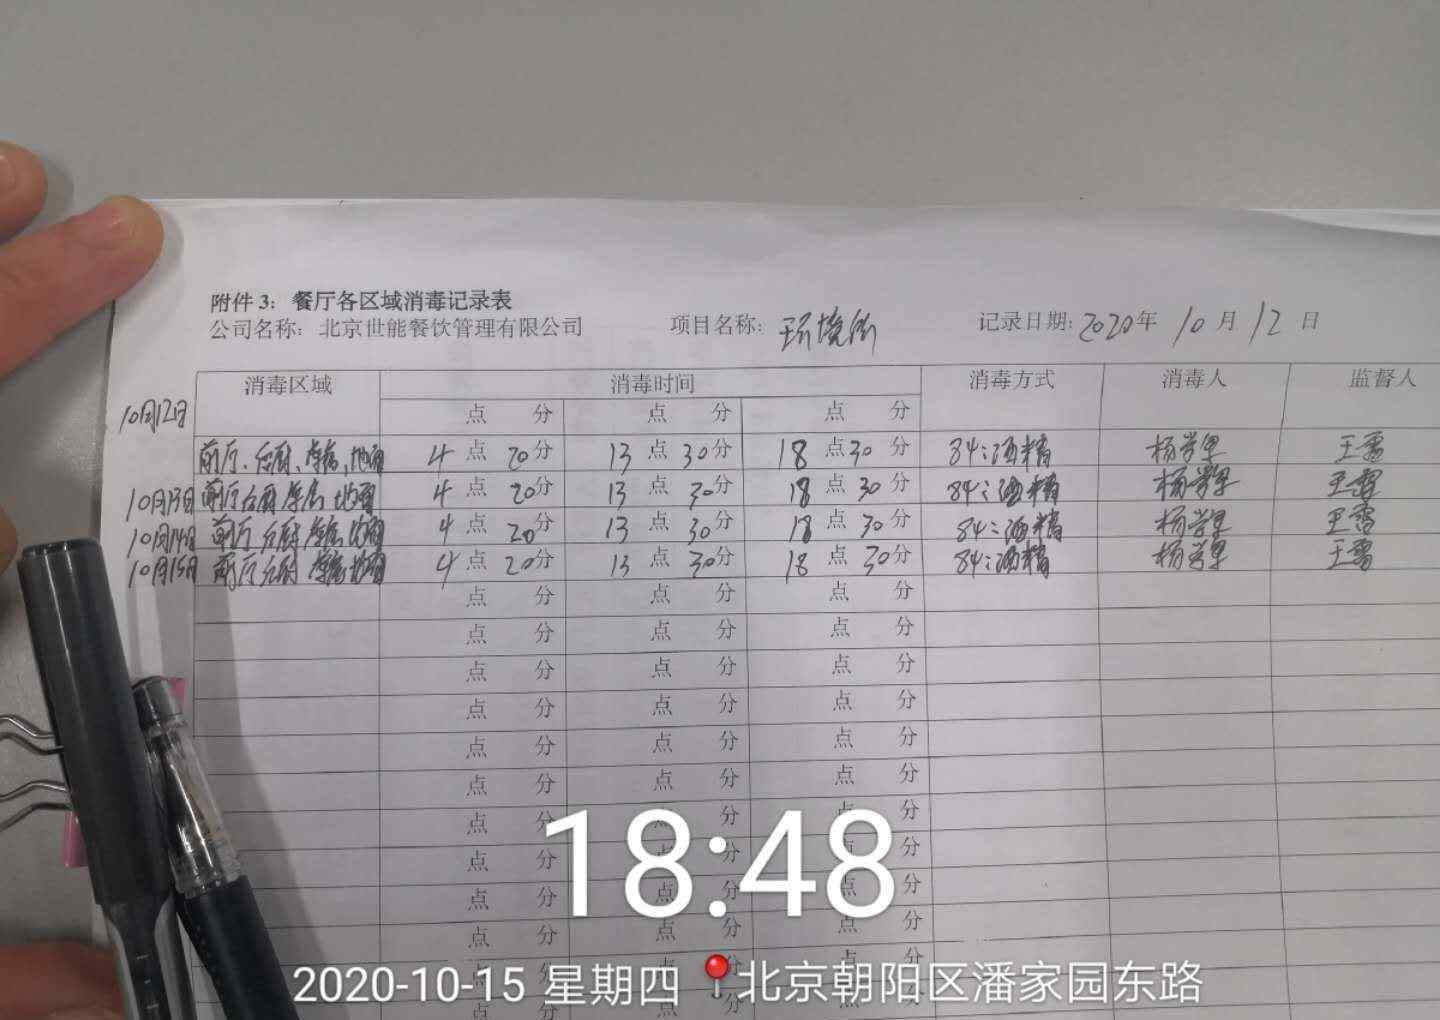 附件 3：餐厅各区域消毒记录表
公司名称：北京世能餐饮管理有限公司 项目名称： 记录日期：2020年 10 月 12 日
消毒区域 消毒时间 消毒方式 消毒人 监督人
10月12日 点 分 点 分 点 分
前厅、后厨、 4 点 20分 13 点 30分 18 点 30分 84：酒精
10月13日 前厅 后厨 4 点 20分 13 点 30分 18 点 30分 84：酒精
10月14日 前厅 后厨 4 点 20分 13 点 30分 18 点 30分 84：酒精
10月15日 前厅 后厨 4 点 20分 13 点 30分 18 点 30分 84：酒精
点 分 点 分 点 分
点 分 点 分 点 分
点 分 点 分 点 分
点 分 点 分 点 分
点 分 点 分 点 分
点 分 点 分 点 分
点 分 点 分 点 分
点 分 点 分 点 分
点 分 点 分 点 分
点 分 点 分 点 分
18:48
2020-10-15 星期四 北京朝阳区潘家园东路